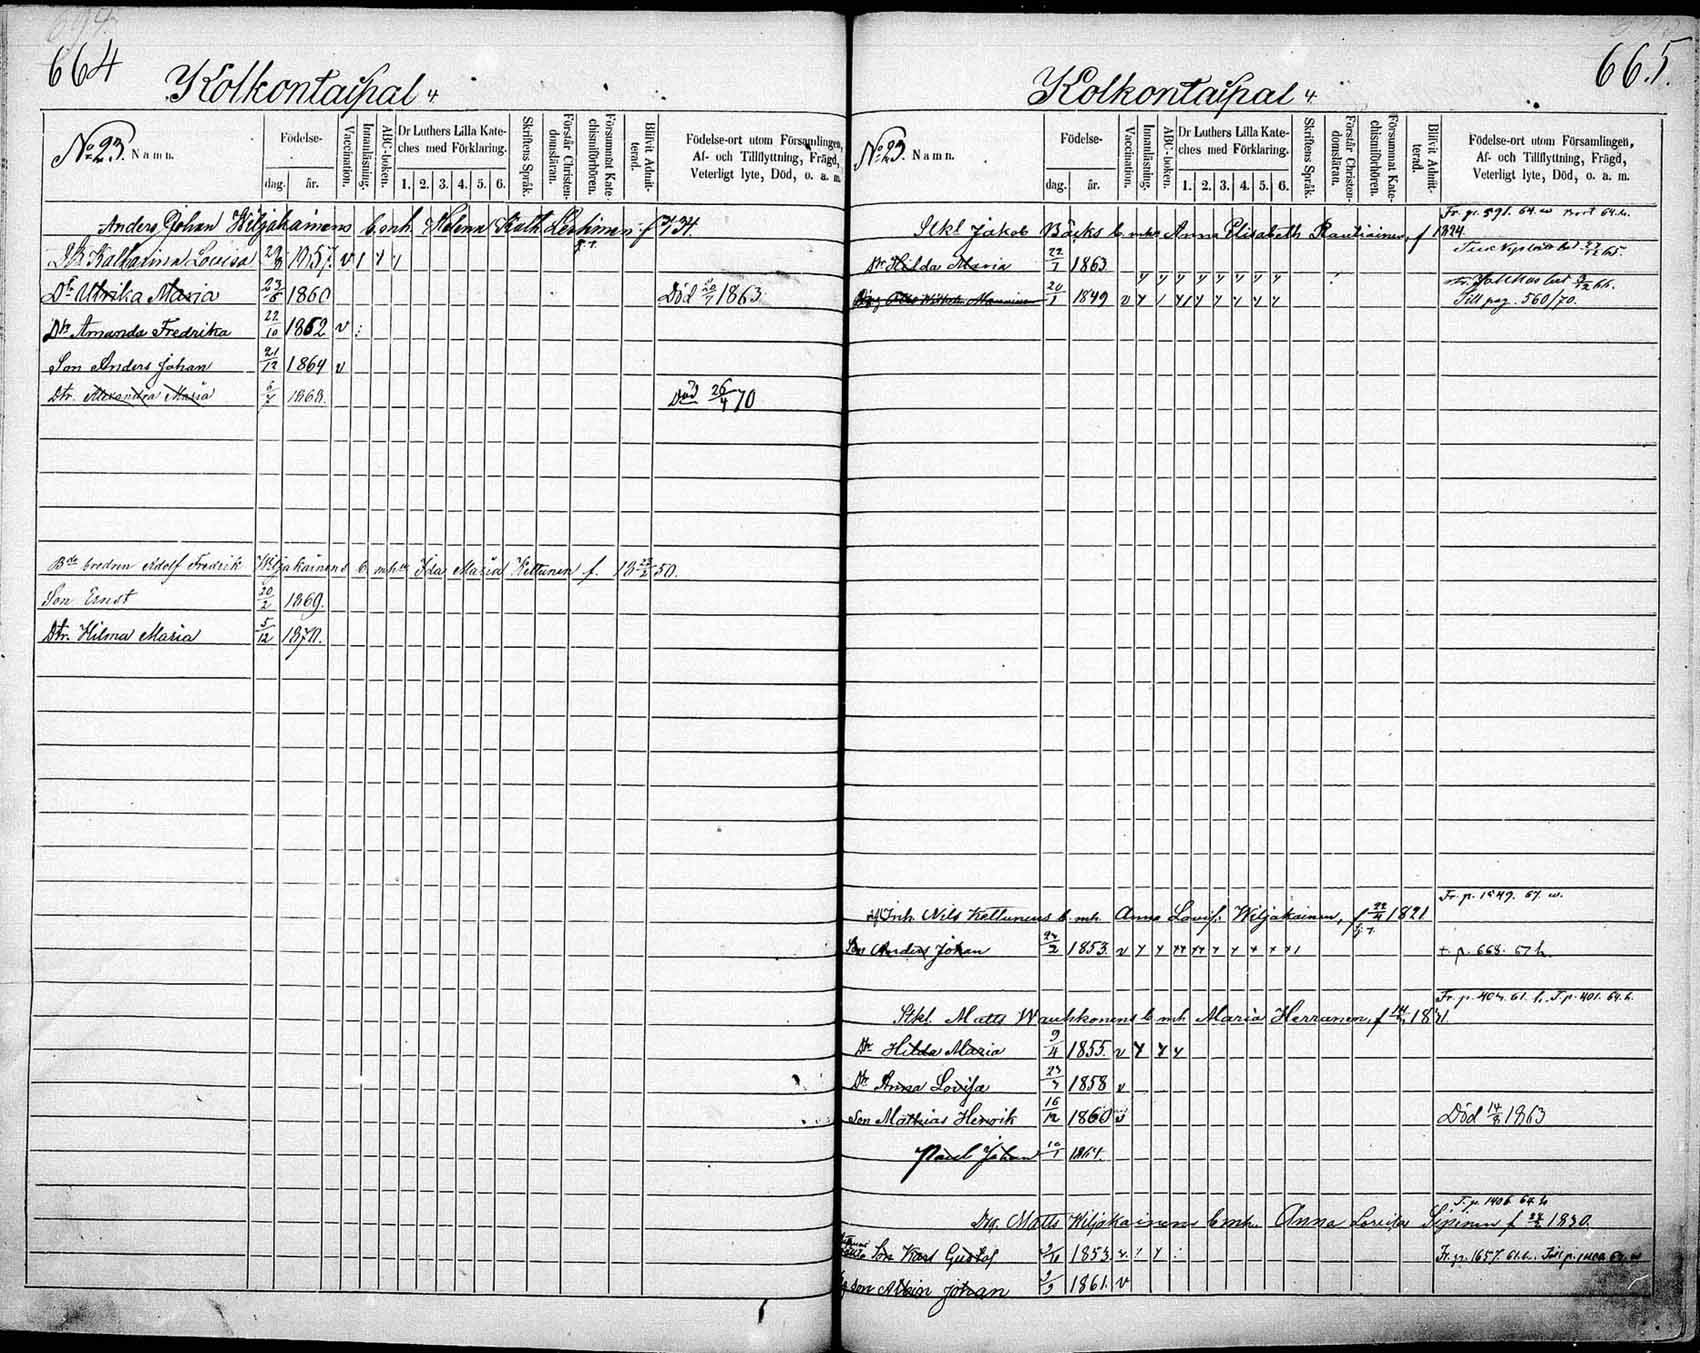 664
Kolkontaipal 4.
No 23. Namn.
Födelse-
dag. år.
Vaccination.
Innanläsning.
ABC-boken.
Dr Luthers Lilla Kate-
ches med Förklaring.
1. 2. 3. 4. 5. 6.
Skriftens Språk.
Förstår Christen-
domsläran.
Försummat Kate-
chismiförhören.
Blifvit Admit-
terad.
Födelse-ort utom Församlingen,
Af- och Tillflyttning, Frägd,
Veterligt lyte, Död, o. a. m.
Anders Johan Wiljakainens b. mh. Helena Kath. Leskinen f 34.
Katharina Lovisa 1857. v
Dr Ulrika Maria 23/6 1860 Död 1863
Dtr Amanda Fredrika 22/10 1862 v
Son Anders Johan 21/12 1864 v
Dtr. Alexandra Maria 1868. Död 26/4 70
Bde brodren Adolf Fredrik Wiljakainens b. mhu Ida Maria Kettunen f. 18 50.
Son Ernst 20/2 1869.
Dtr. Hilma Maria 5/12 1870.
665.
Kolkontaipal 4
No 23. Namn.
Födelse-
dag. år.
Vaccination.
Innanläsning.
ABC-boken.
Dr Luthers Lilla Kate-
ches med Förklaring.
1. 2. 3. 4. 5. 6.
Skriftens Språk.
Förstår Christen-
domsläran.
Försummat Kate-
chismiförhören.
Blifvit Admit-
terad.
Födelse-ort utom Församlingen,
Af- och Tillflyttning, Frägd,
Veterligt lyte, Död, o. a. m.
Fr. p. 591. 64. w
Jakob Bäcks b. mhu Anna Elisabeth Rautiainen, f 1824.
65.
Dr Hilda Maria 22/1 1863
66.
20/1 1849 v Till pag. 560/70.
Fr. p. 1849. 67. w.
Inh. Nils Kettunens b. mh. Anna Lovis. Wiljakainen, f 22/4 1821
Son Anders Johan 1853. v t. p. 668. 67 h.
Fr. p. 61. h. T. p. 401. 64. h.
Stkl. Matts Wauhkonens b. mh. Maria Herranen, f
Dr Hilda Maria 9/4 1855. v
Dr Anna Lovisa 1858 v
Son Mathias Henrik 16/12 1860 v Död 1863
Paul Johan 1864.
T. p. 1406 64. h
Matts Wiljakainens b. mh. Anna Lovisa f 1830.
Son Karl Gustof 1853 Fr. p. 1657. 61. h. Till p.
son Albin Johan 1861. v